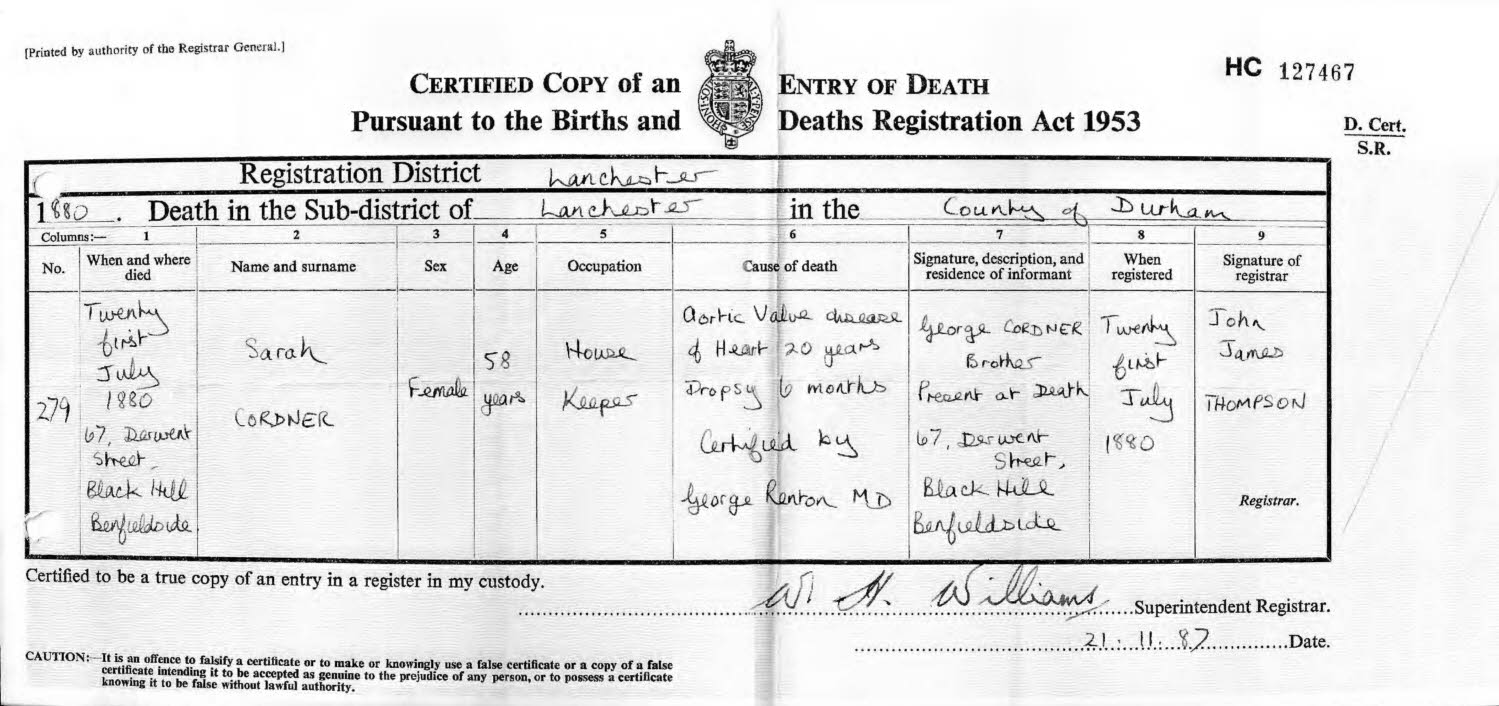 [Printed by authority of the Registrar General.]
HC 127467
CERTIFIED COPY of an ENTRY OF DEATH
Pursuant to the Births and Deaths Registration Act 1953
D. Cert.
S.R.
Registration District Lanchester
1880. Death in the Sub-district of Lanchester in the County of Durham
Columns:— 1 2 3 4 5 6 7 8 9
No.
When and where
died
Name and surname
Sex
Age
Occupation
Cause of death
Signature, description, and
residence of informant
When
registered
Signature of
registrar
279
Twenty
first
July
1880
67, Derwent
Street,
Black Hill
Benfieldside
Sarah
CORDNER
Female
58
years
House
Keeper
Aortic Valve disease
of Heart 20 years
Dropsy 6 months
Certified by
George Renton MD
George CORDNER
Brother
Present at Death
67, Derwent
Street,
Black Hill
Benfieldside
Twenty
first
July
1880
John
James
THOMPSON
Registrar.
Certified to be a true copy of an entry in a register in my custody.
W H. Williams Superintendent Registrar.
21.11.87 Date.
CAUTION:—It is an offence to falsify a certificate or to make or knowingly use a false certificate or a copy of a false
certificate intending it to be accepted as genuine to the prejudice of any person, or to possess a certificate
knowing it to be false without lawful authority.